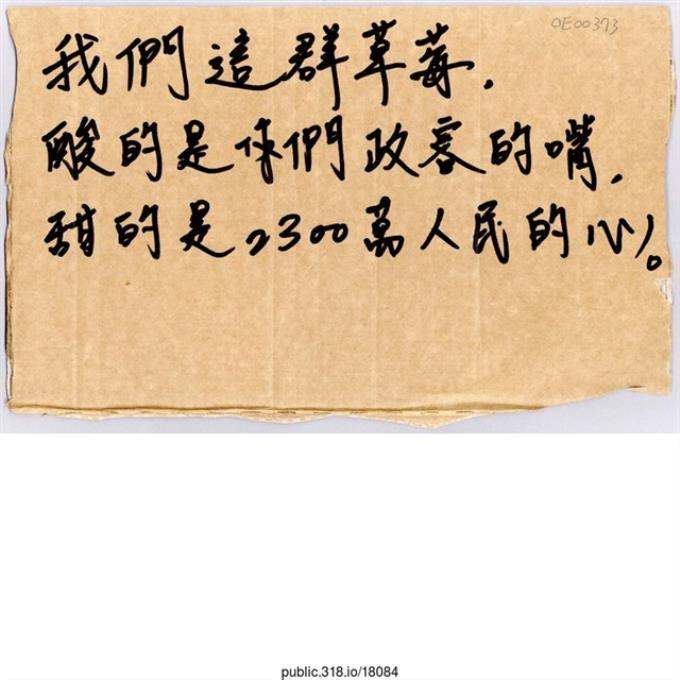 OE00373
我們這群草莓.
酸的是你們政客的嘴.
甜的是2300萬人民的心。
public.318.io/18084